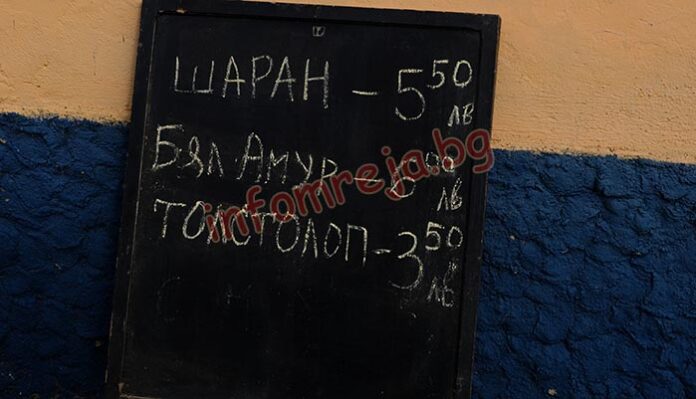 ШАРАН - 5 50 лв
Бял Амур - 6 00 лв
infomreja.bg
ТОЛСТОЛОП - 3 50 лв